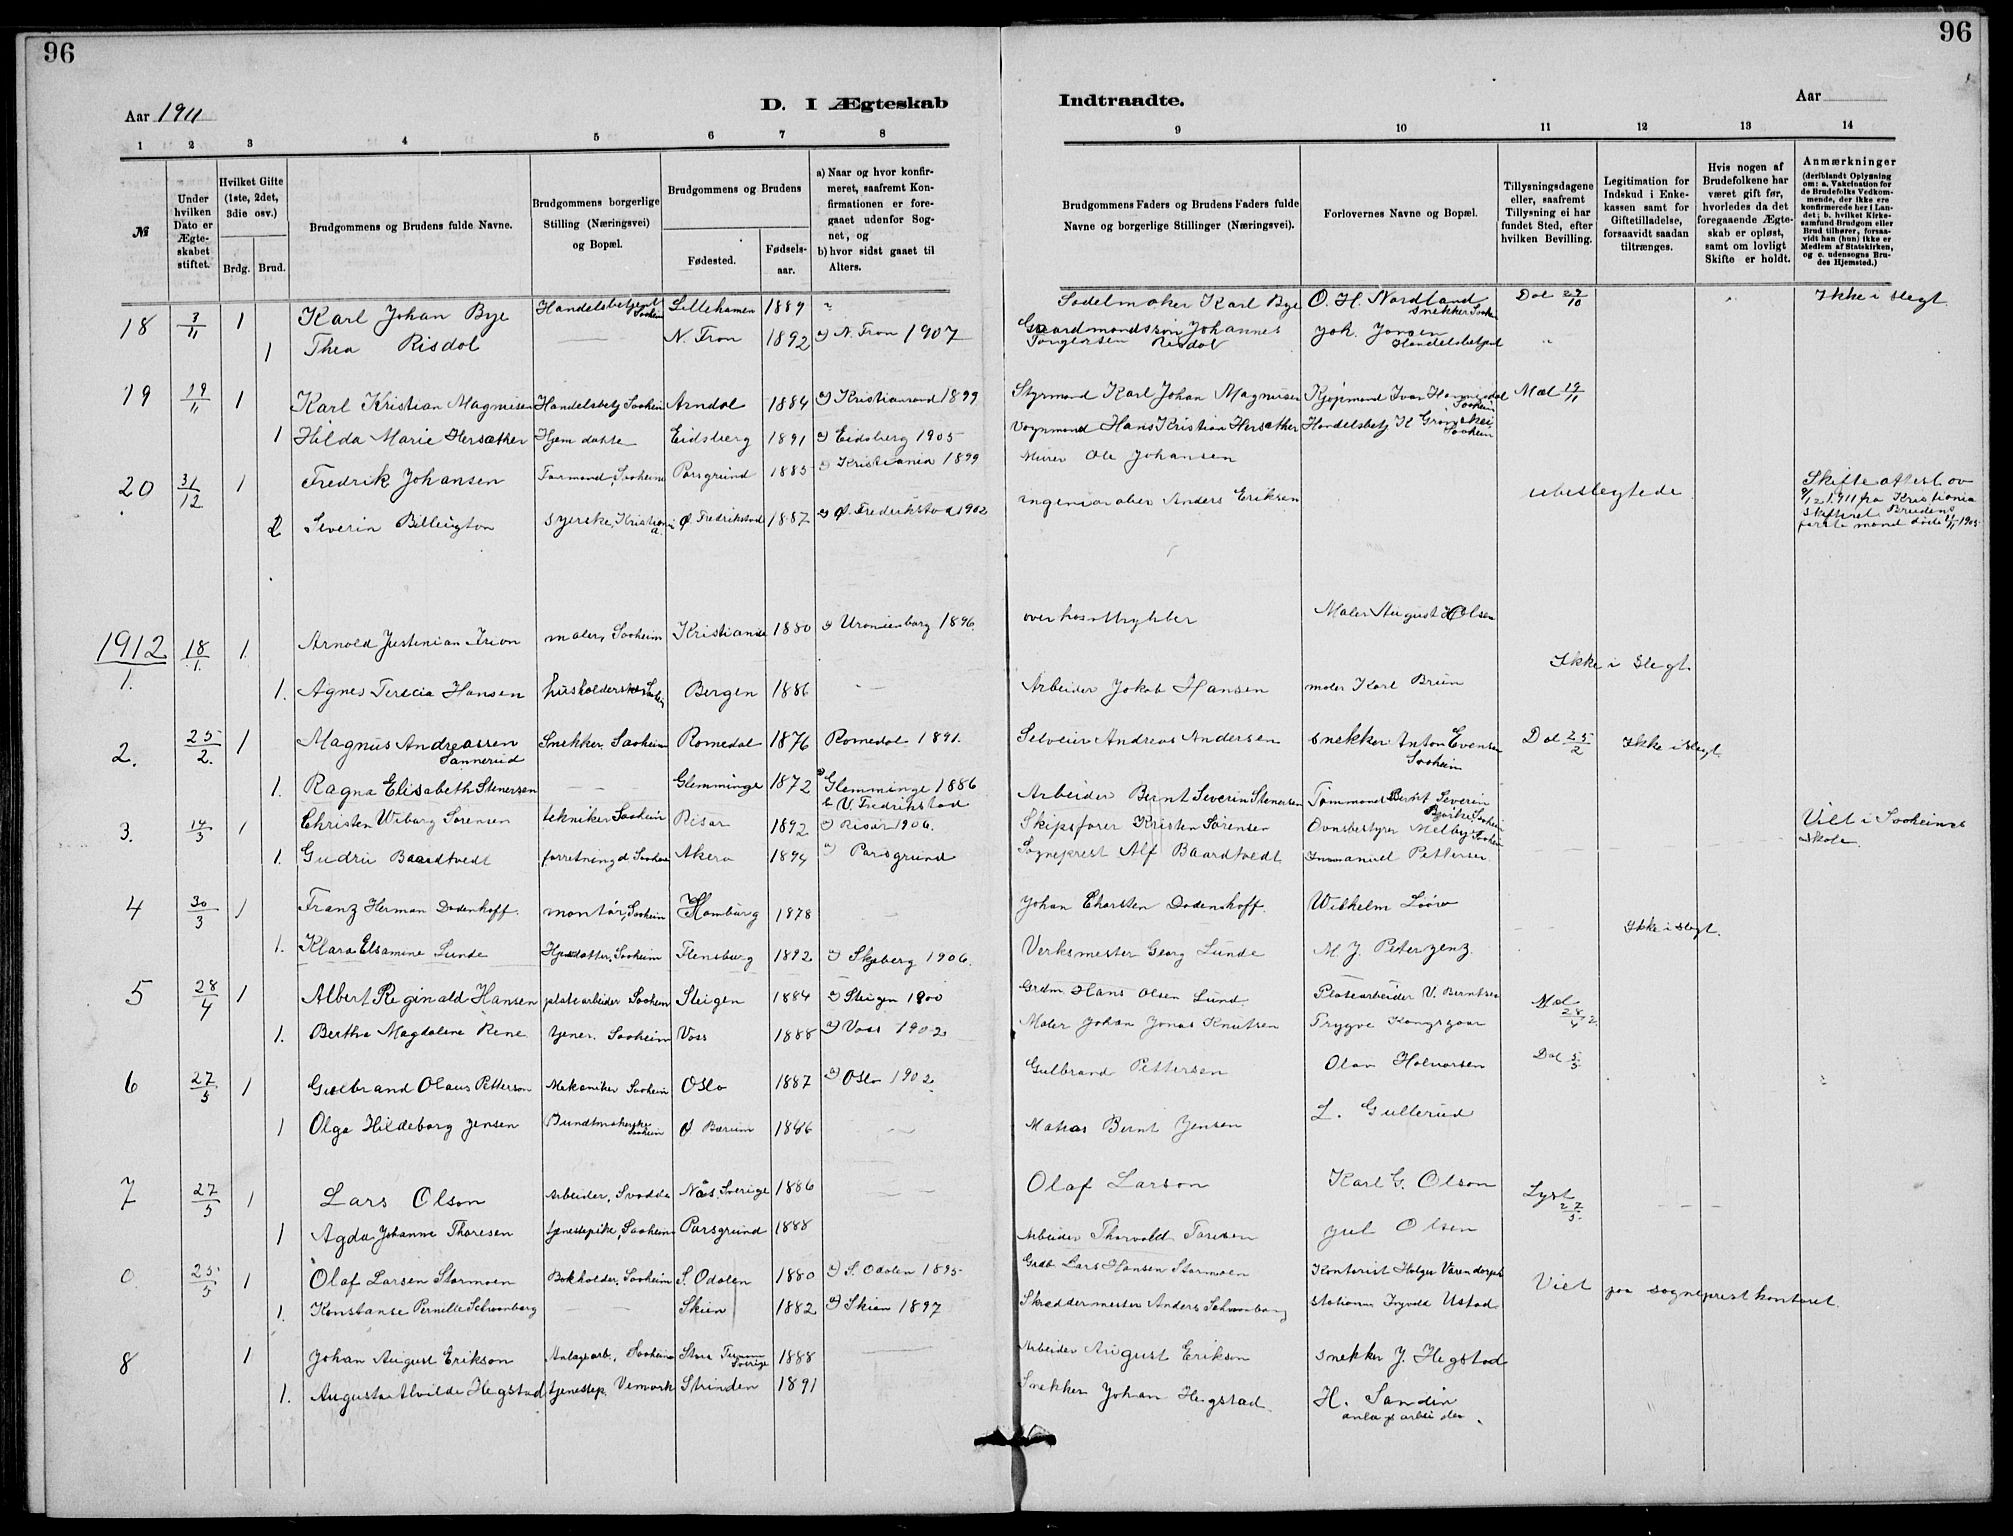 96
96
Aar 1911
D. I Ægteskab
Indtraadte.
Aar
1 2 3 4 5 6 7 8 9 10 11 12 13 14
№
Under hvilken Dato er Ægteskabet stiftet.
Hvilket Gifte (1ste, 2det, 3die osv.)
Brdg. Brud.
Brudgommens og Brudens fulde Navne.
Brudgommens borgerlige Stilling (Næringsvei) og Bopæl.
Brudgommens og Brudens
Fødested. Fødselsaar.
a) Naar og hvor konfirmeret, saafremt Konfirmationen er foregaaet udenfor Sognet, og
b) hvor sidst gaaet til Alters.
Brudgommens Faders og Brudens Faders fulde Navne og borgerlige Stillinger (Næringsvei).
Forlovernes Navne og Bopæl.
Tillysningsdagene eller, saafremt Tillysning ei har fundet Sted, efter hvilken Bevilling.
Legitimation for Indskud i Enkekassen samt for Giftetilladelse, forsaavidt saadan tiltrænges.
Hvis nogen af Brudefolkene har været gift før, hvorledes da det foregaaende Ægteskab er opløst, samt om lovligt Skifte er holdt.
Anmærkninger
(deriblandt Oplysning om: a. Vakcination for de Brudefolks Vedkommende, der ikke ere konfirmerede her i Landet; b. hvilket Kirkesamfund Brudgom eller Brud tilhører, forsaavidt han (hun) ikke er Medlem af Statskirken, og c. udensogns Brudes Hjemsted.)
18 3/11 1 Karl Johan Bye Handelsbetjent Saaheim Lillehamen 1889 " Sadelmaker Karl Bye O. H. Nordland snekker Dal 29/10 Ikke i slegt.
1 Thea Risdal N. Fron 1892 a) N. Fron 1907 Gaardmandssøn Johannes Risdal Joh. Jansen Handelsbetjent
19 19/11 1 Karl Kristian Magnusen Handelsbetj Saaheim Arndal 1884 a) Kristiansand 1899 Styrmand Karl Johan Magnusen Kjøpmand Ivar Saaheim Mæl 19/11
1 Hilda Marie Hersæther Hjem datte Eidsberg 1891 a) Eidsberg 1905 Vognmand Hans Kristian Hersæther Handelsbetj K Saaheim
20 31/12 1 Fredrik Johansen Formand, Saaheim Porsgrund 1885 a) Kristiania 1899 Murer Ole Johansen ubeslegtede Skifteattest av 9/12 1911 fra Kristiania skifteret Brudens første mand døde 1905
2 Severin Billington syerske, Kristiania Ø. Fredrikstad 1887 a) Ø. Fredrikstad 1902 Ingeniør Anders Eriksen
1912
1. 18/1. 1. Arnold Justinian Irion maler, Saaheim Kristiania 1880 a) Uranienborg 1896. Maler August H Olsen
Ikke i slegt.
1. Agnes Terecia Hansen husholderske Bergen 1886 Arbeider Jakob Hansen maler Karl Brun
2. 25/2. 1 Magnus Andreassen Sannerud Snekker, Saaheim Romedal 1876 Romedal 1891. Selveier Andreas Andersen snekker Anton Evensen Saaheim Dal 25/2 Ikke i slegt.
1. Ragna Elisabeth Stenersen Glemminge 1872 a) Glemminge 1886 b V. Fredrikstad Arbeider Bernt Severin Stenersen Tømmand Bernt Severin Bjørke Saaheim
3. 14/3 1 Christen Wiborg Sørensen tekniker Saaheim Risør 1892 a) Risør 1906. Skipsfører Kristen Sørensen Ovnsbestyrer Melby Saaheim Viet i Saaheims skole.
1. Gudrun Baardtvedt forretningsd Saaheim Akero 1894 a) Porsgrund Sogneprest Alf Baardtvedt Immanuel Pettersen.
4 30/3 1 Franz Herman Dodenhoff. montør, Saaheim Hamburg 1878 Johan Chorsten Dodenshoff. Wilhelm
Ikke i slegt.
1. Klara Elsamine Lunde Hjedatter, Saaheim Flensburg 1892 a) Skjeberg 1906. Verksmester Georg Lunde M. J. Peterzenz.
5 28/4 1 Albert Reginald Hansen platearbeider Saaheim Steigen 1884 a) Steigen 1900 Grdm Hans Olsen Lund. Platearbeider V. Berntsen Mæl 28/4
1. Bertha Magdalene Rene tjener. Saaheim Voss 1888 a) Voss 1902 Maler Johan Jonas Knutsen Trygve Kongsgaar
6 27/5 1 Gulbrand Olaus Petterson Mekaniker Saaheim Oslo 1887 a) Oslo 1902 Gulbrand Pettersen Olav Halvorsen Dal 5/5
1 Olga Hildeborg Jensen Buntmakerske Saaheim Ø Bærum 1886 Matias Bernt Jensen L. Gullerud
7 27/5 1 Lars Olson Arbeider, Svadde Nås, Sverige 1886 Olaf Larson Karl G. Olson Lyst 27/5.
1 Agda Johanne Thoresen tjenestepike, Saaheim Porsgrund 1888 Arbeider Thorvald Toresen Jul Olsen
0 25/5 1 Olaf Larsen Stormoen Bokholder, Saaheim S. Odalen 1880 a) S. Odalen 1895 Grdb Lars Hansen Stormoen Kontorist Holger Varendorph
Viet paa sogneprestkontoret.
1. Konstanse Pernille Schwanborg Skien 1882 a) Skien 1897 Skreddermester Anders Schwanborg Ingvald Ustad
8 1 Johan August Erikson Anlægsarb, Saaheim Stora Sverige 1888 Arbeider August Erikson snekker J. Hegstad
1. Augusta Alvilde Hegstad tjenestep. Vemork Strinden 1891 Snekker Johan Hegstad. H. Sandin anlægsarbeider.